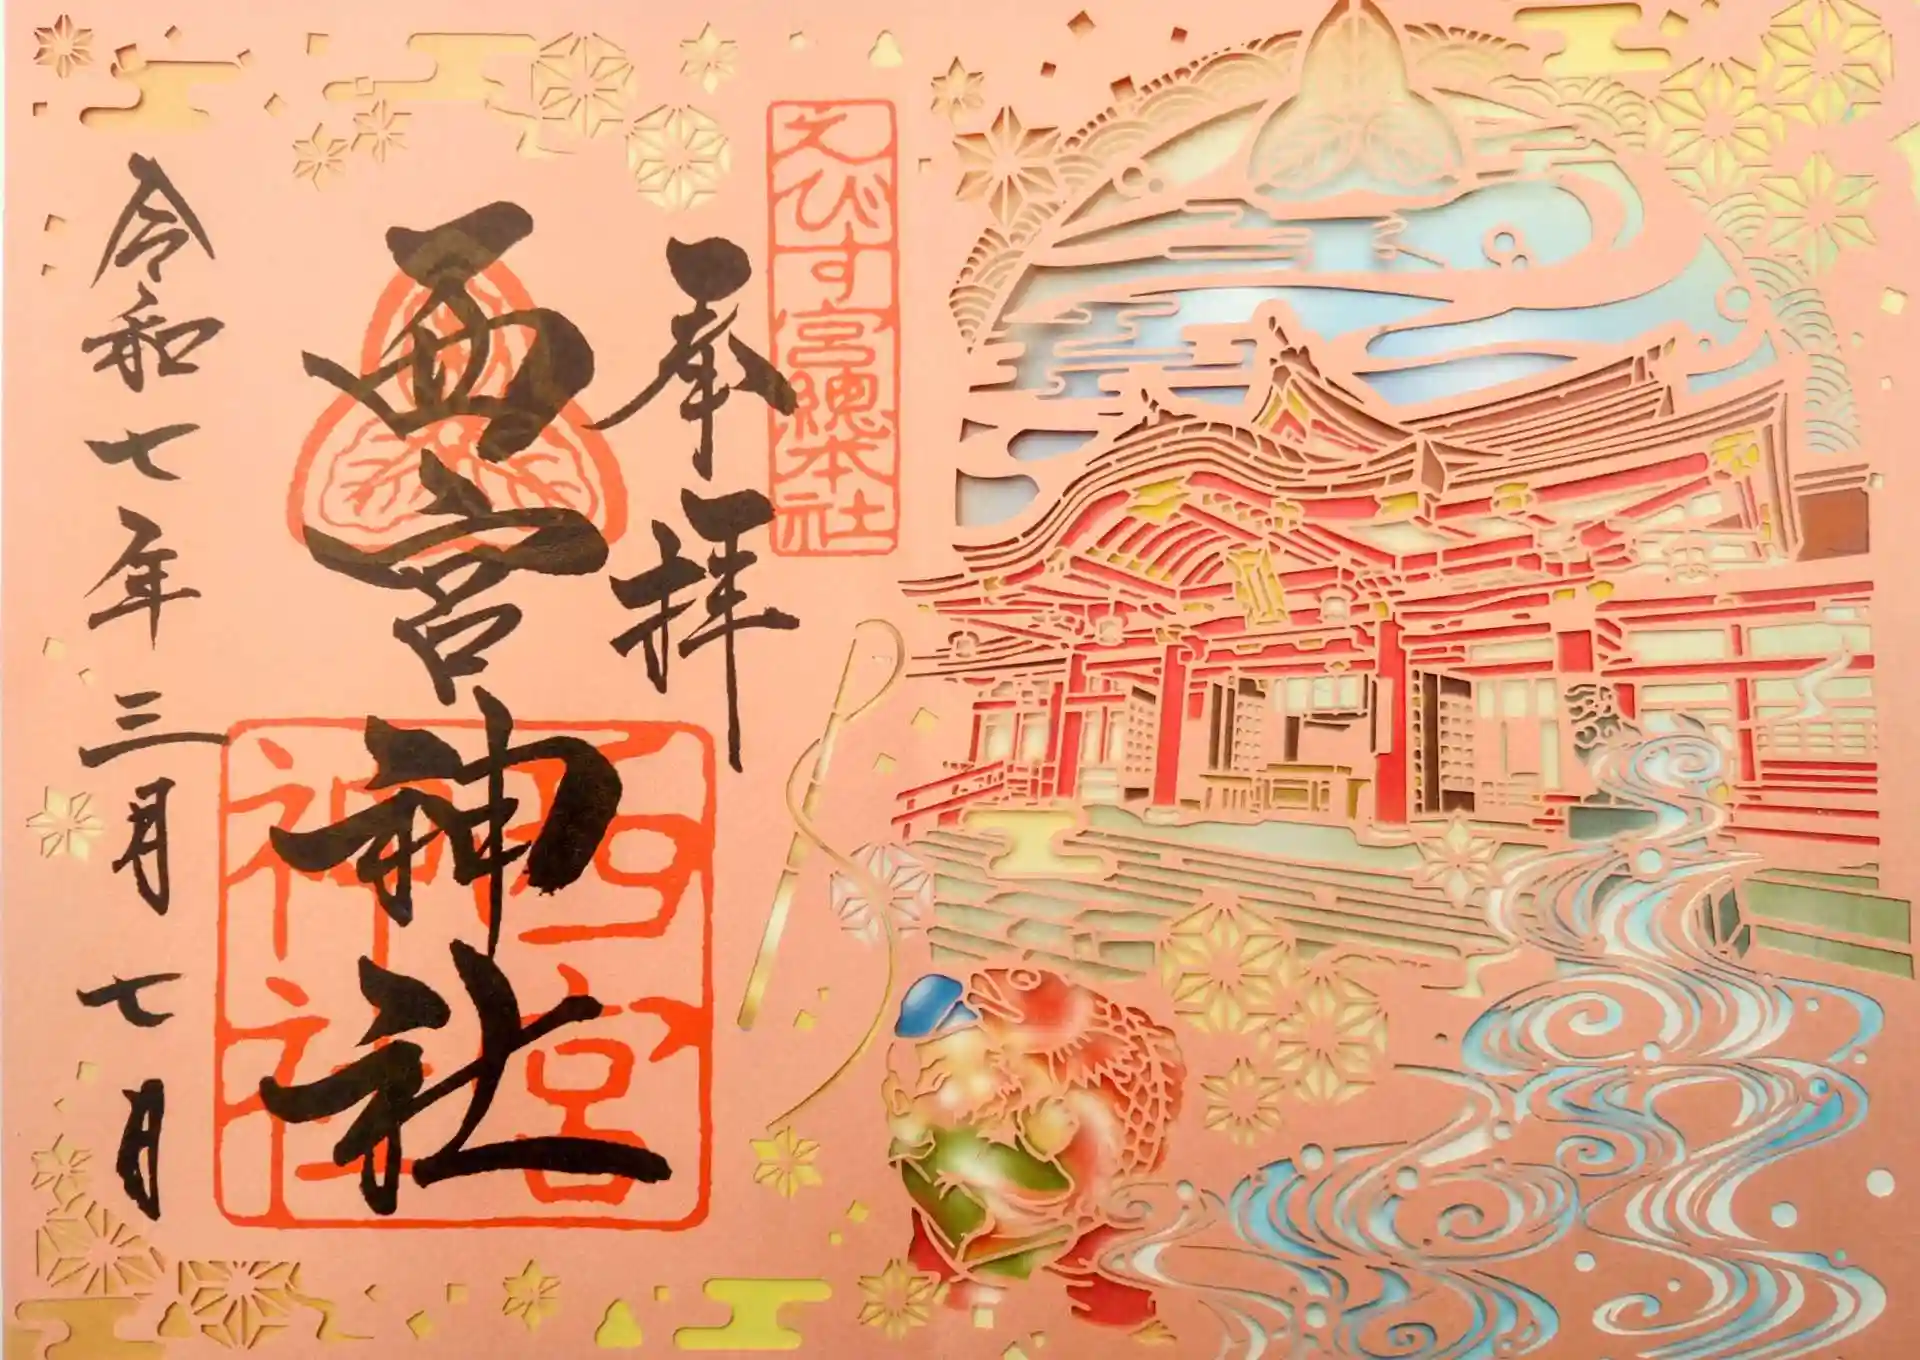 えびす宮總本社
奉拝
西宮神社
西宮神社
令和七年三月七日